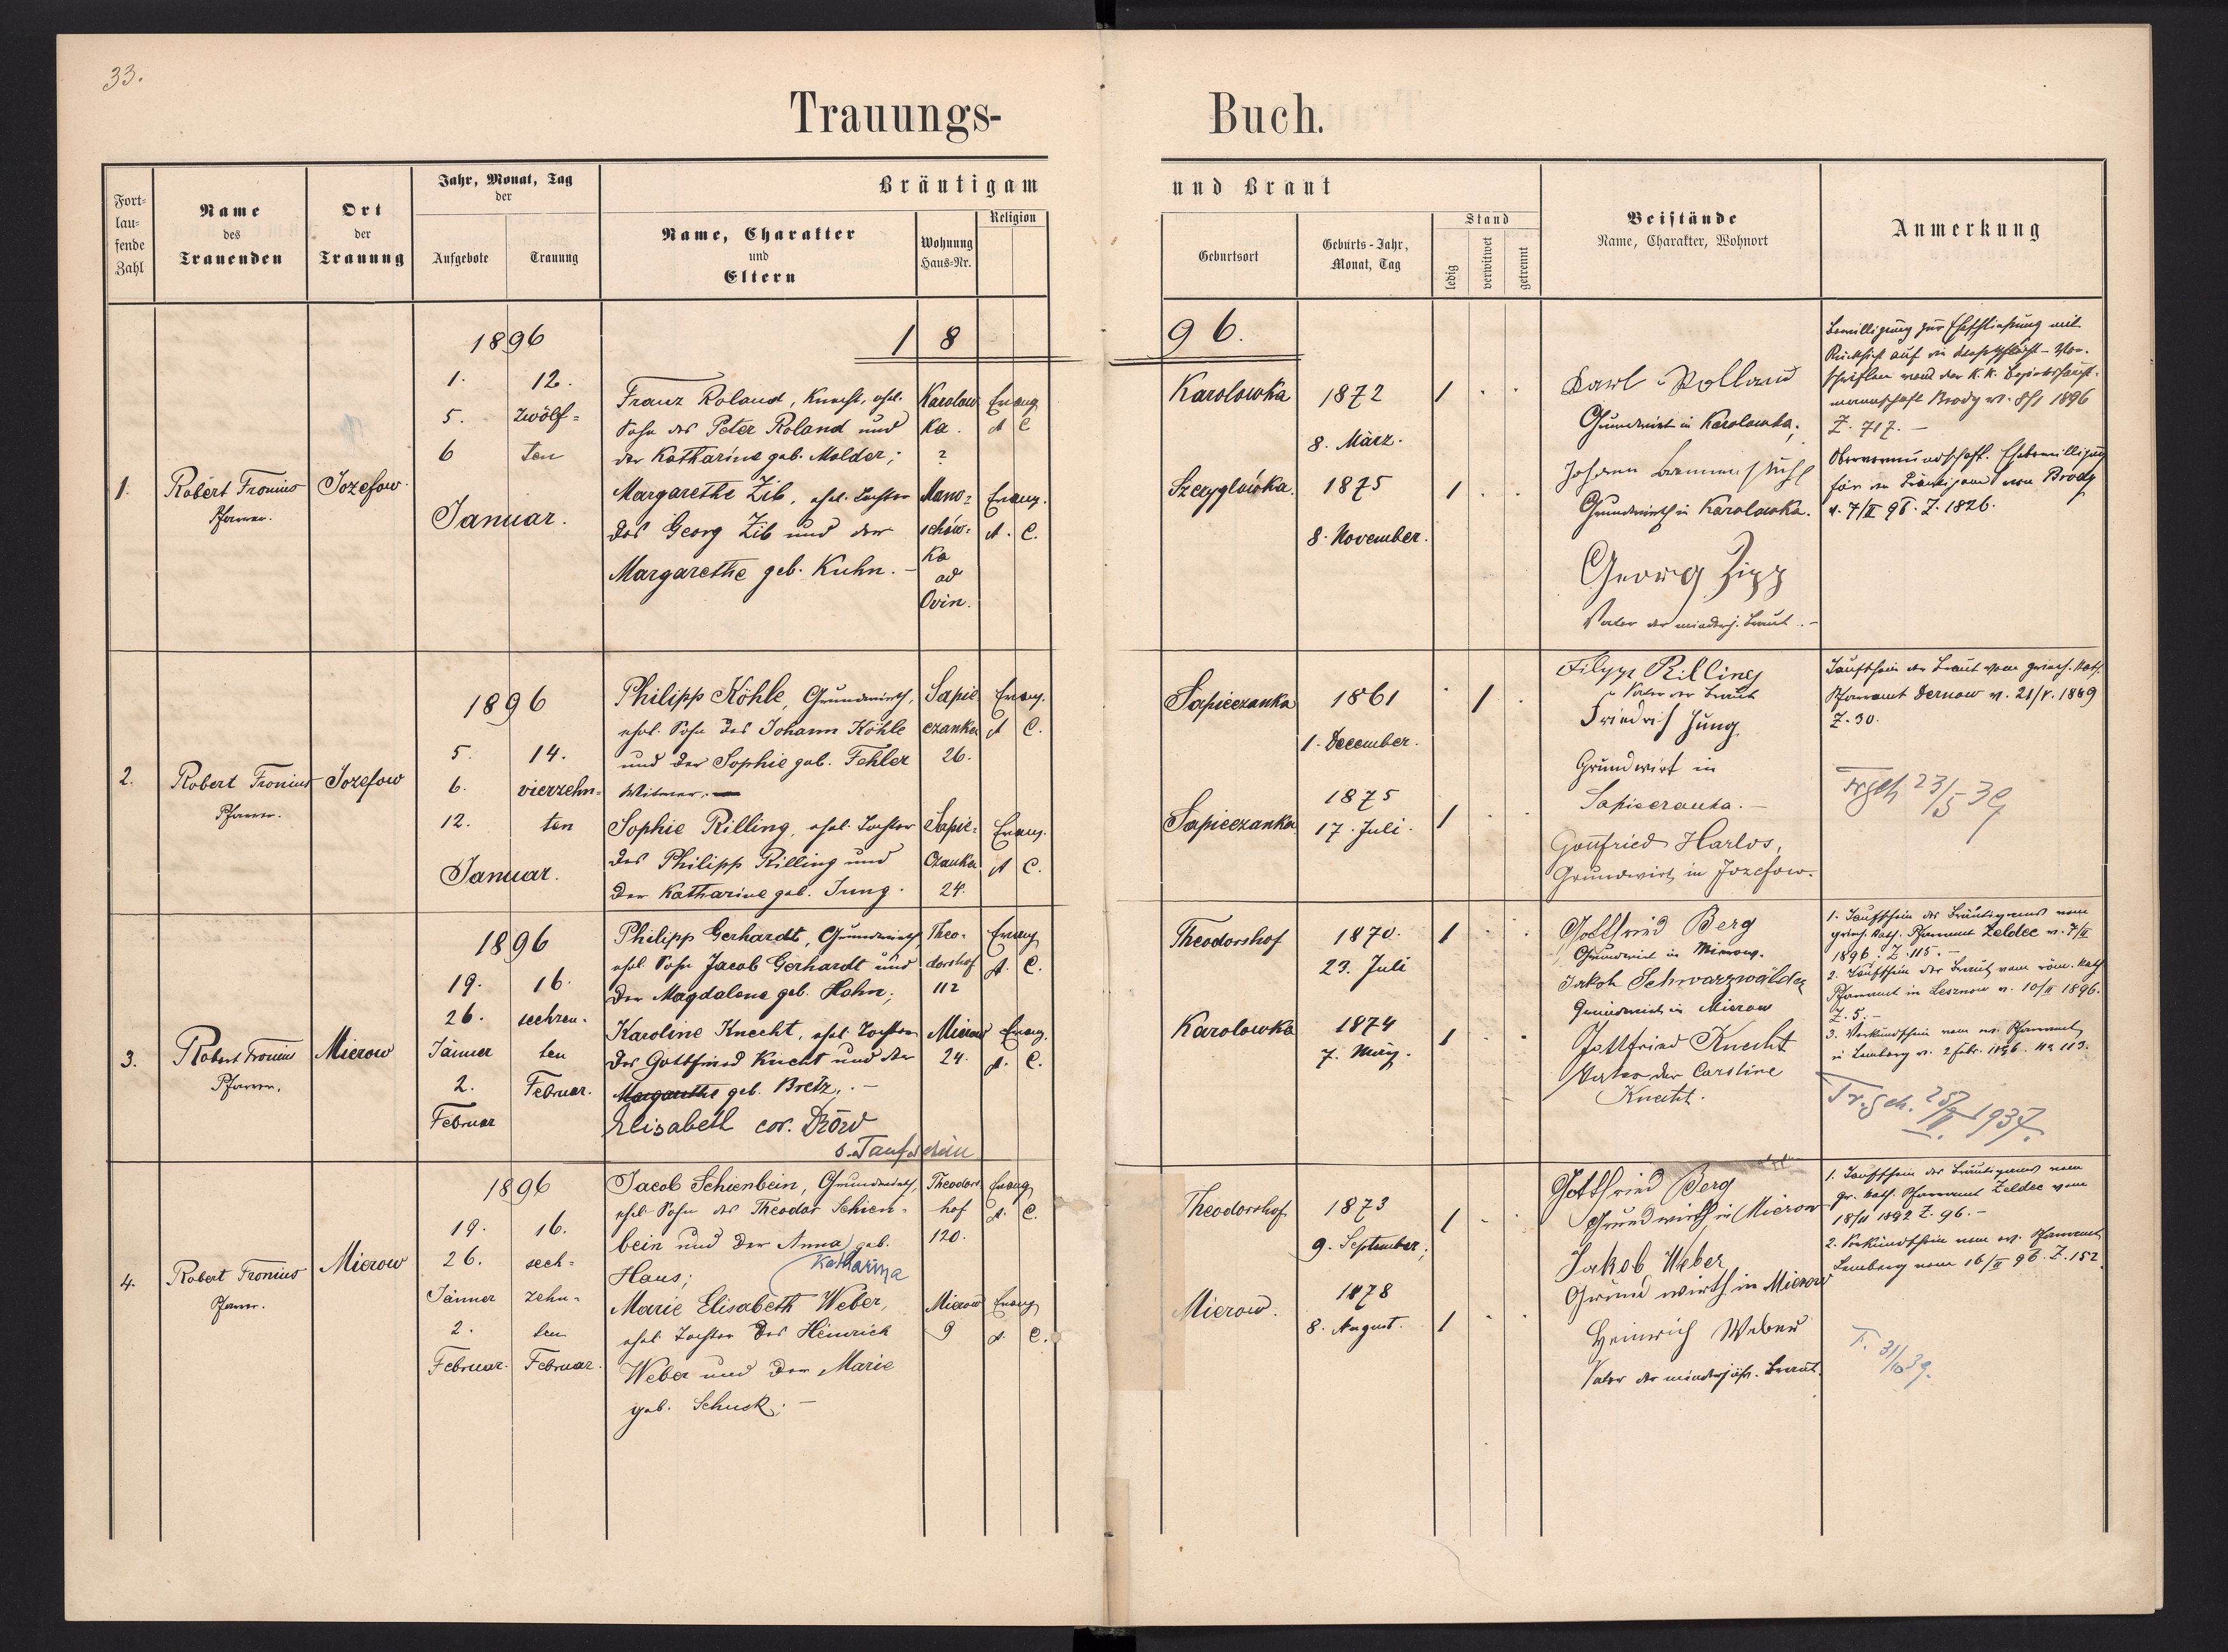 33.
Trauungs-
Buch.
Fort-
lau-
fende
Zahl
Name
des
Trauenden
Ort
der
Trauung
Jahr, Monat, Tag
der
Aufgebote
Trauung
Bräutigam
Name, Charakter
und
Eltern
Wohnung
Haus-Nr.
Religion
und Braut
Geburtsort
Geburts-Jahr,
Monat, Tag
Stand
ledig
verwitwet
getrennt
Beistände
Name, Charakter, Wohnort
Anmerkung
1 8
96.
1.
Robert Fronius
Pfarrer.
Jozefow
1896
1. 12.
5. zwölf=
6 ten
Januar.
Franz Roland, Knecht, ehel.
Sohn des Peter Roland und
der Katharine geb. Molder;
Karolow
ka.
?
Evang
A C
Margarethe Zib, ehel. Tochter
des Georg Zib und der
Margarethe geb. Kuhn. -
Mano=
schów=
ka
ad
Ovin.
Evang.
A. C.
Karolowka
1872
8. März.
1 . .
Szczyglowka.
1875
8. November.
1 . .
Karl Rolland
Grundwirt in Karolowka;
Johann
Grundwirth in Karolowka.
Georg Zipp
Vater der minderj. Braut. -
Bewilligung zur Eheschließung mit
Rücksicht auf die Wehrpflicht-Vor-
schriften von der k. k. Bezirkshaupt-
mannschaft Brody 1896
Z. 717. -
Obervormundschaft. Ehebewilligung
für den Bräutigam von Brody
v. 7/II 96. Z. 1826.
2.
Robert Fronius
Pfarrer.
Jozefow
1896
5. 14.
6. vierzehn=
12. ten
Januar.
Philipp Köhle, Grundwirth,
ehel. Sohn des Johann Köhle
und der Sophie geb. Fehler
Witwer. -
Sapie
czanka
26.
Evang.
A C.
Sophie Rilling, ehel. Tochter
des Philipp Rilling und
der Katharine geb. Jung.
Sapie=
czanka
24.
Evang.
A C.
Sapieczanka
1861
1. December.
. 1 .
Sapieczanka
1875
17. Juli.
1 . .
Filipp Rilling
Vater der Braut
Friedrich Jung
Grundwirt in
Sapiezanka. -
Gottfried Harlos,
Grundwirt in Jozefow.
Taufschein der Braut vom griech. kath.
Pfarramt Dernow v. 21/V. 1869
Z. 30.
23/5 39
3.
Robert Fronius
Pfarrer.
Mierow
1896
19. 16.
26. sechzen-
Jänner ten
2. Februar.
Februar
Philipp Gerhardt, Grundwirth
ehel. Sohn Jacob Gerhardt und
der Magdalena geb. Hahn;
Theo-
dorshof
112
Evang
A. C.
Karoline Knecht, ehel. Tochter
des Gottfried Knecht und der
Margarethe geb. Bretz. -
Elisabeth cor. Dröw
s. Taufschein
Mierow
24.
Evang.
A. C.
Theodorshof
1870.
23. Juli
1 . .
Karolowka
1874
7. März.
1 . .
Gottfried Berg
Grundwirt in Mierow.
Jakob Schwarzwälder
Grundwirt in Mierow
Gottfried Knecht
Vater der Caroline
Knecht.
1. Taufschein des Bräutigams vom
griech. kath. Pfarramt Zeldec v. 7/II
1896. Z. 115. -
2. Taufschein der Braut vom röm. kath
Pfarramt in Lesznow v. 10/II 1896.
Z. 5. -
3. Verkündschein vom ev. Pfarramt
in Lemberg v. 2 Febr. 1896. No 113.
Tr. Sch. 1937.
4.
Robert Fronius
Pfarrer.
Mierow
1896
19. 16.
26. sech=
Jänner zehn=
2. ten
Februar. Februar.
Jacob Schienbein, Grundwirth,
ehel. Sohn des Theodor Schien-
bein und der Anna geb.
Katharina
Haus;
Theodors
hof
120.
Evang
A. C.
Marie Elisabeth Weber,
ehel. Tochter des Heinrich
Weber und der Marie
geb. Schuck; -
Mierow
9
Evang
A. C.
Theodorshof
1873
9. September;
1 . .
Mierow.
1878
8. August.
1 . .
Gottfried Berg
Grundwirth in Mierow
Jakob Weber
Grundwirth in Mierow
Heinrich Weber
Vater der minderjäh. Braut.
1. Taufschein des Bräutigams vom
gr. kath. Pfarramt Zeldec vom
18/II 1892 Z. 96. -
2. Verkündschein vom ev. Pfarramt
Lemberg vom 16/II 96. Z. 152.
T. 31/10 39.